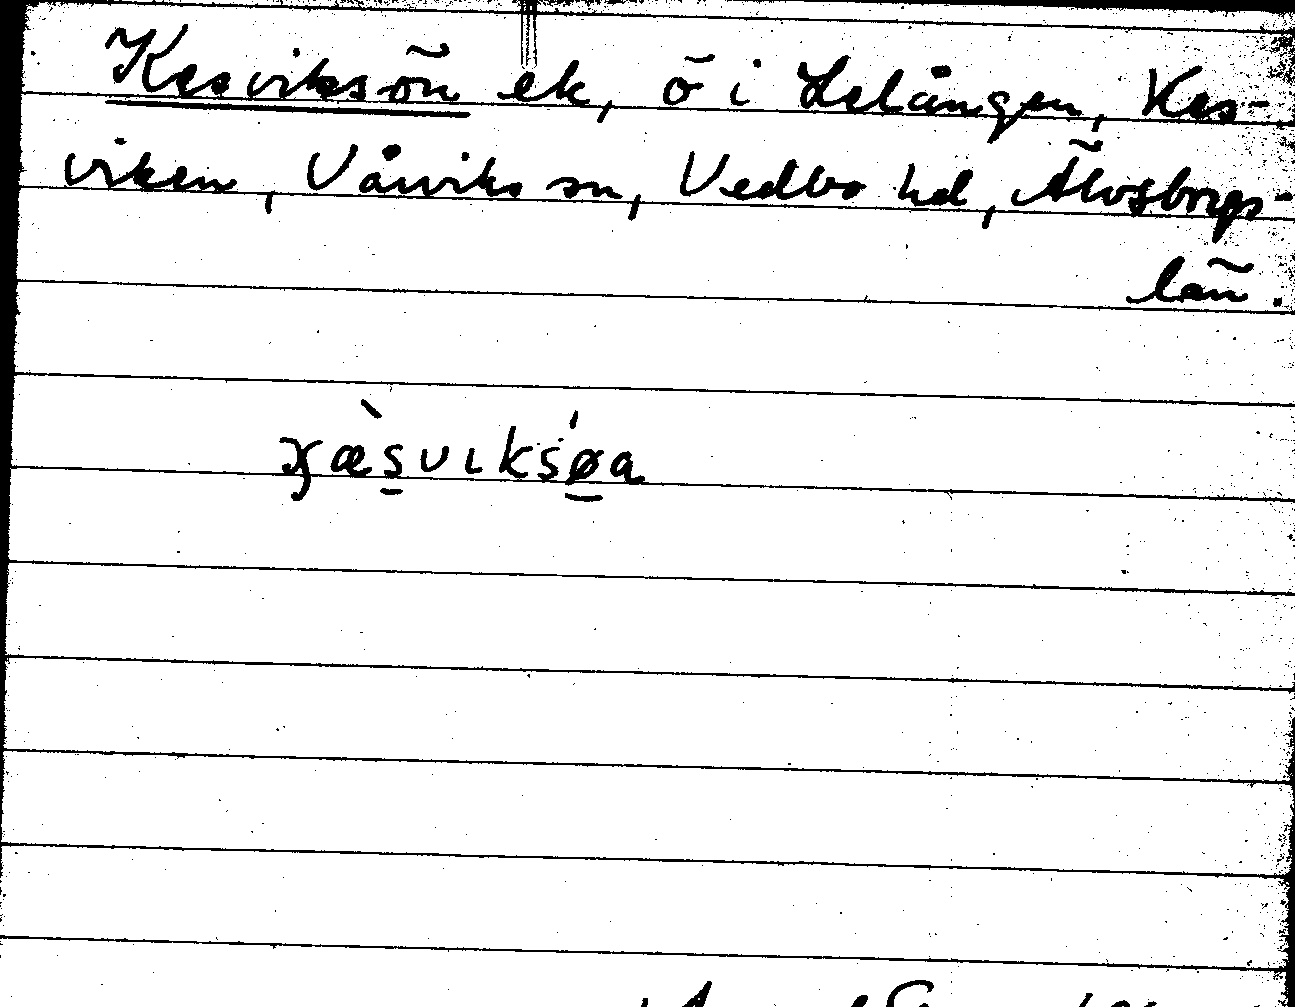 Kesviksön ek, ö i Lelången, Kes-
viken, Vårviks sn, Vedbo hd, Älvsborgs-
län.